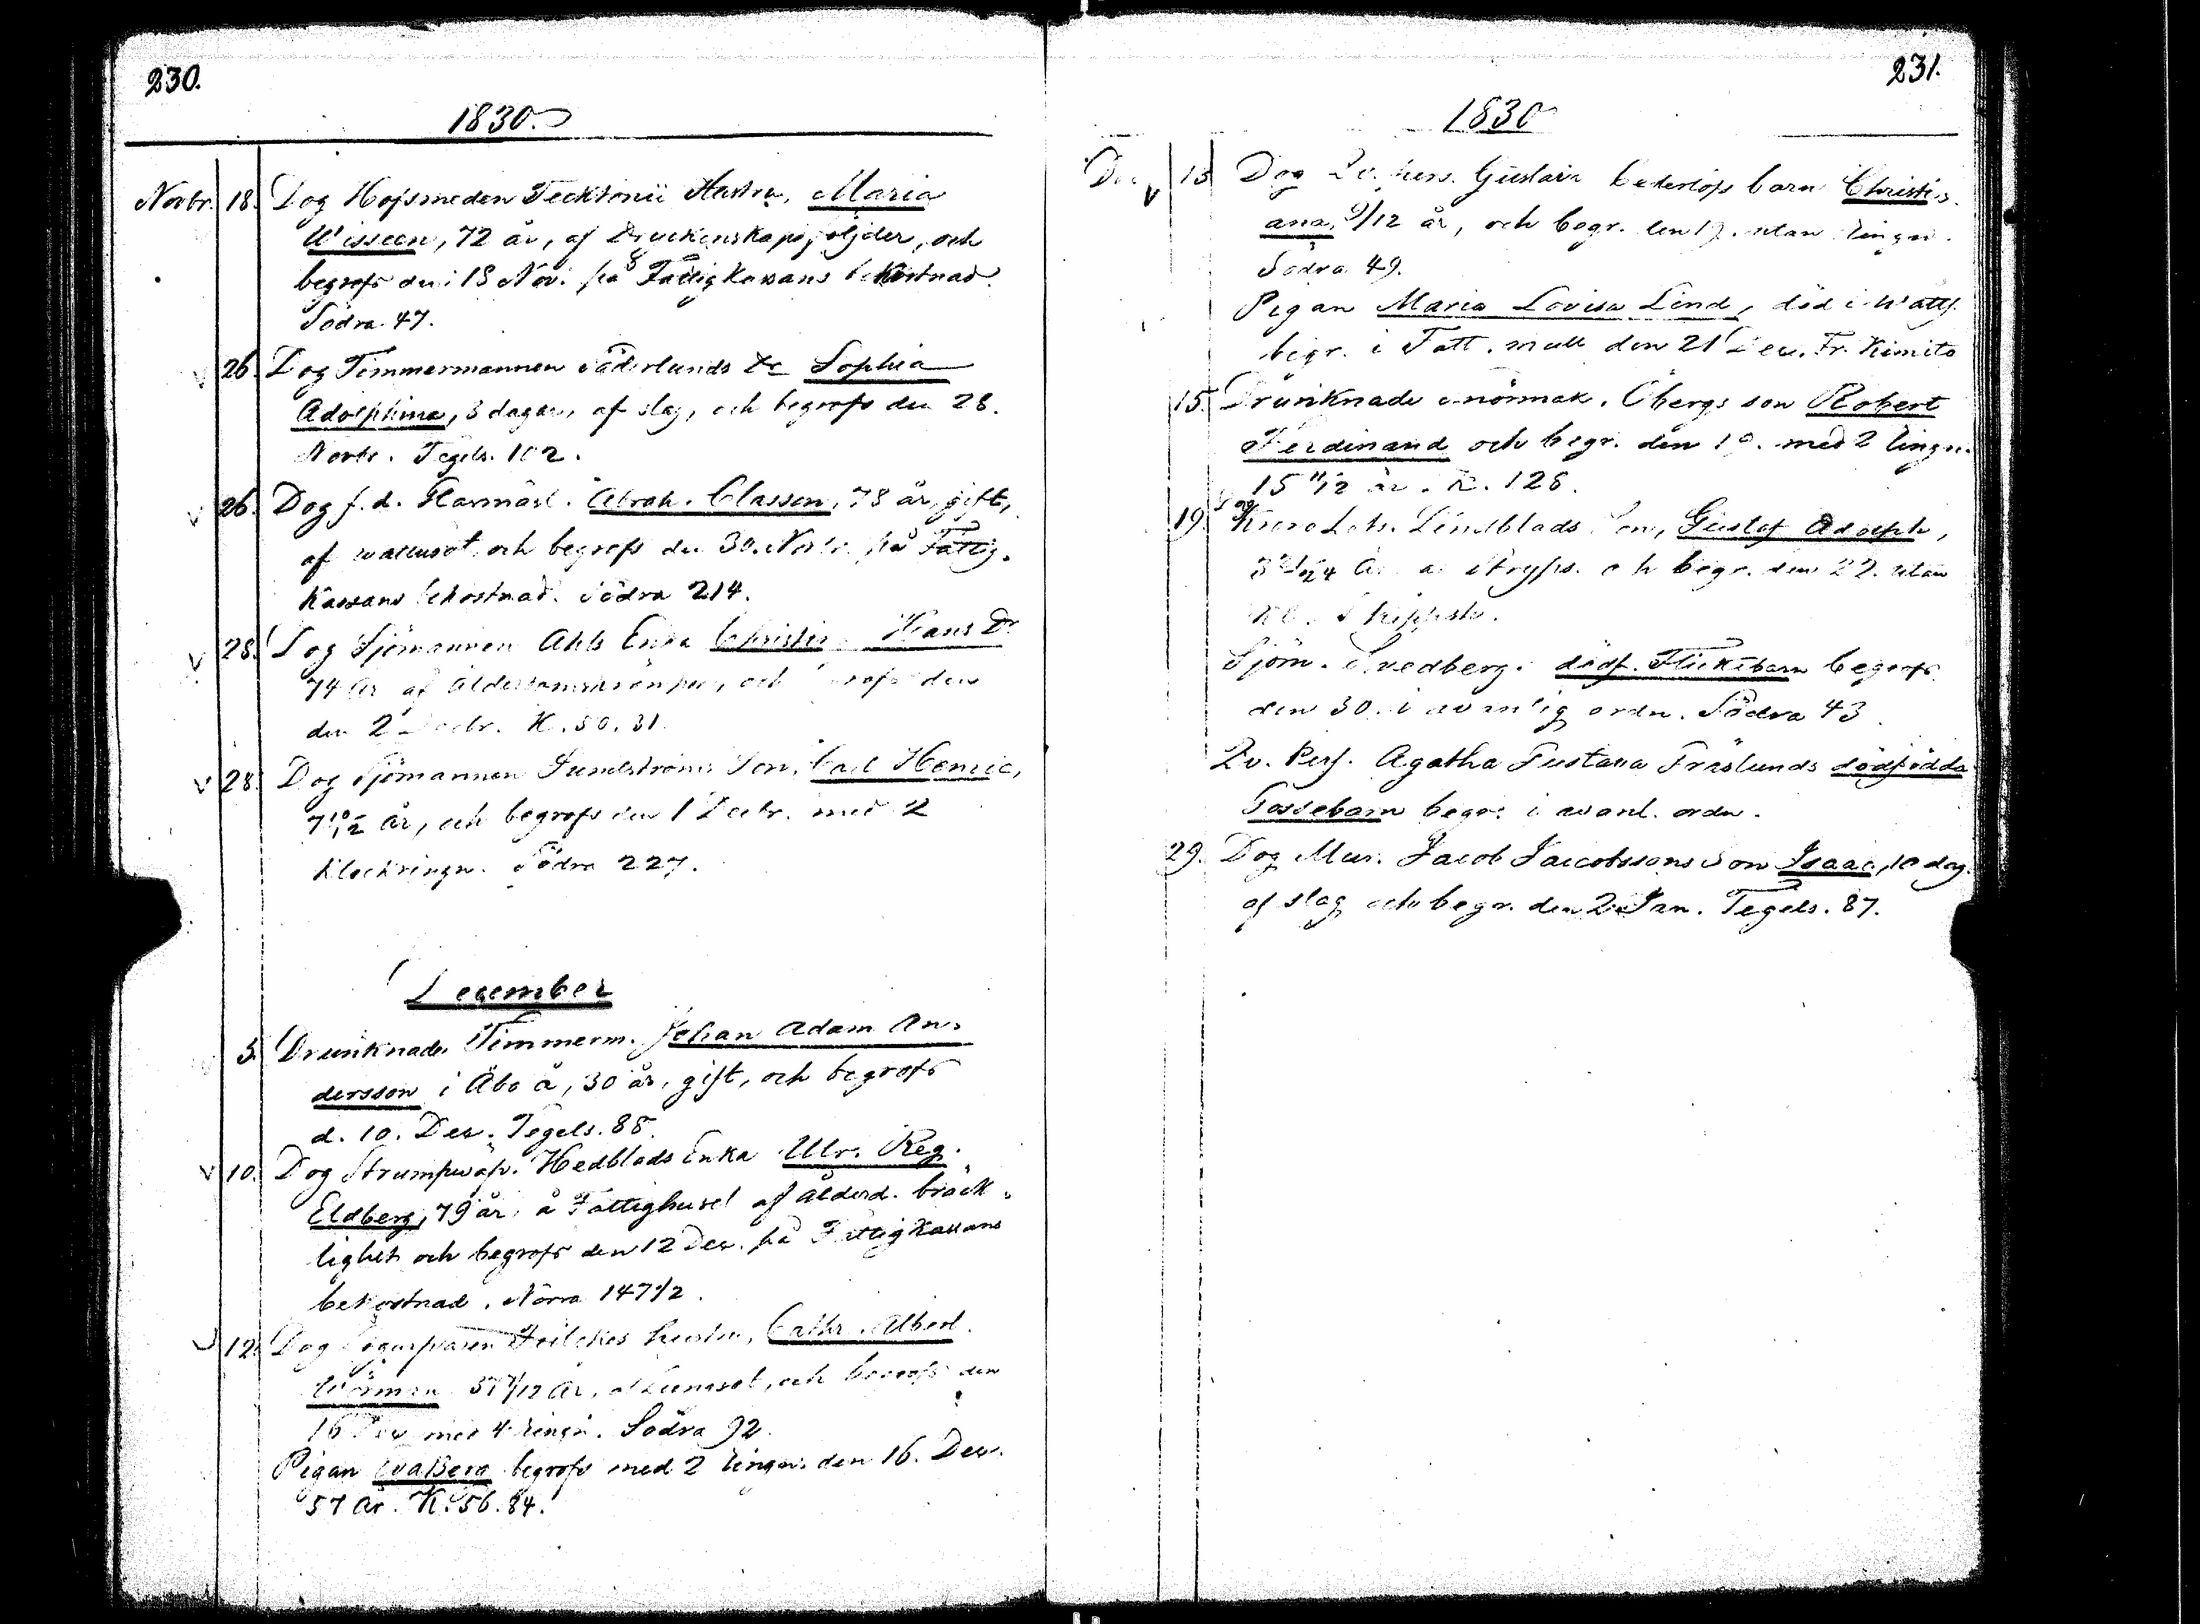 230.
1830.
Novbr. 18. Dog Hofsmeden Tecktonii Hustru, Maria
Wisseen, 72 år, af Druckenskaps följder, och
begrofs den 18 Nov. på Fattigkassans bekostnad.
Södra 47.
26. Dog Timmermannen Söderlunds Dr Sophia
Adolphina, 3 dagar, af slag, och begrofs den 28.
Novbr. Tegels. 102.
26. Dog f. d. Abrah. Classen, 78 år, gift,
af wattusot och begrofs den 30. Novbr. på Fattig-
Kassans bekostnad. Södra 214.
28. Dog Sjömannen Ahls Enka Hans Dr
74 år af och den
den 2 Decbr. K. 50. 31.
28. Dog Sjömannen Sundströms Son, Carl Henric,
7 10/12 år, och begrofs den 1 Decbr. med 2
Klockringn. Södra 227.
December
5. Drunknade Timmerm. Johan Adam An-
dersson i Åbo å, 30 år, gift, och begrofs
d. 10. Dec. Tegels. 88.
10. Dog Strumpwäfv. Hedblads Enka Ulr. Reg.
Eldberg, 79 år, å Fattighuset af ålderd. bräck-
lighet och begrofs den 12 Dec. på Fattigkassans
bekostnad. Norra 147 1/2.
12. Dog hustru, Cathr. Albert.
år, af Lungsot, och begrofs den
16 Dec med 4 ringn. Södra 92.
Pigan Eva Berg begrofs med 2 ringn. den 16. Dec.
57 år. K. 56. 84.
231.
1830
Dec 13 Dog Qv. pers. Gustava barn Christi-
ana, 9/12 år, och begr. den utan ringn.
Södra 49.
Pigan Maria Lovisa Lind, död i Watts.
begr. i Fatt. mull den 21 Dec. Fr. Kimito
15. Drunknade Öbergs son Robert
Ferdinand och begr. den med 2 ringn.
15 11/12 år. K. 128.
19. Dog Lindblads Son, Gustaf Adolph,
år af Stryps. och begr. den 22. utan
Kl.
Sjöm. Svedbergs dödf. Flickebarn begrofs
den 30. i vanlig ordn. Södra 43.
Qv. Pers. Agatha Gustava Fröslunds dödfödda
Gossebarn begr. i vanl. ordn.
29. Dog Mur. Jacob Jacobssons Son Isaac, 10 dag.
af slag och begr. den 2 Jan. Tegels. 87.